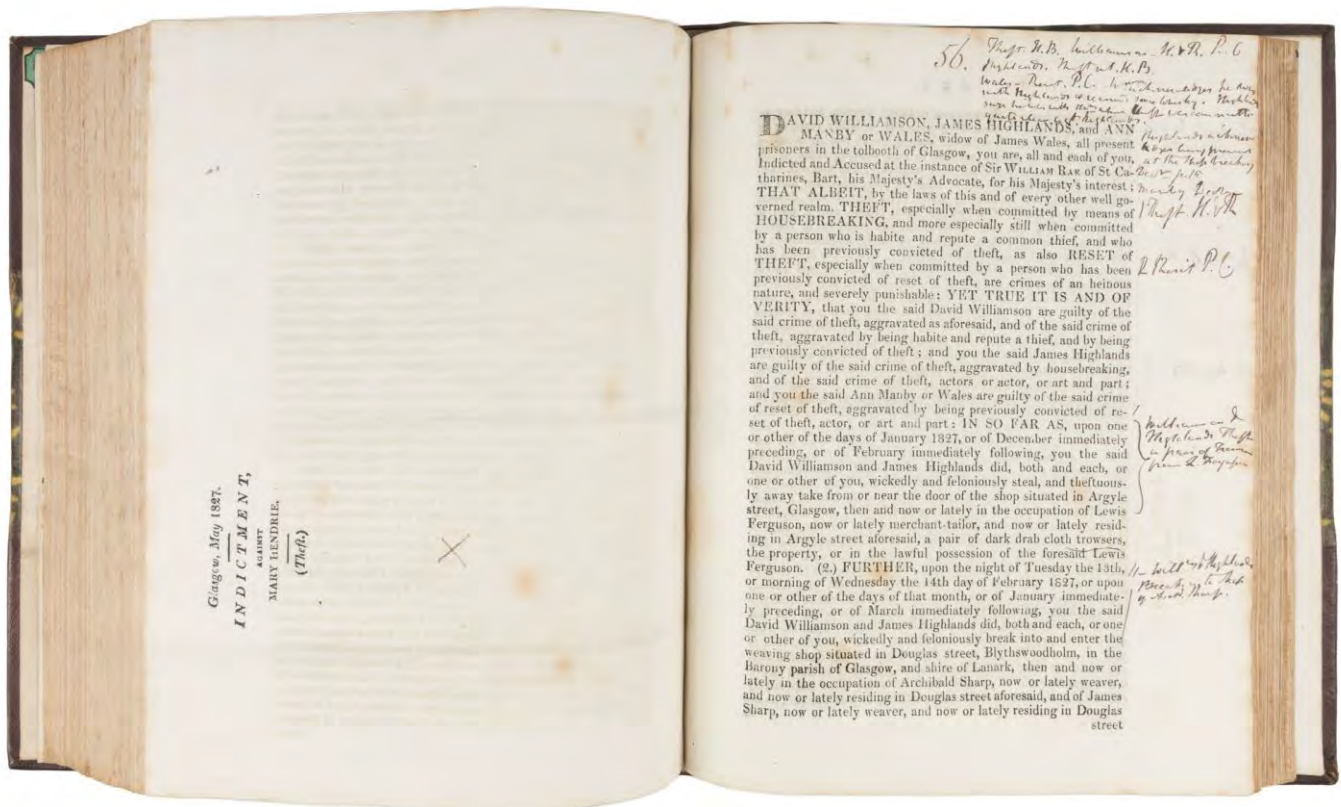 Glasgow, May 1827.
INDICTMENT,
AGAINST
MARY HENDRIE,
(Theft.)
56.
Theft. H.B. Williamson - H. & R. P. C
Highlands. Theft
Wales - P. C.
with Highlands
DAVID WILLIAMSON, JAMES HIGHLANDS, and ANN
MANBY or WALES, widow of James Wales, all present
prisoners in the tolbooth of Glasgow, you are, all and each of you,
Indicted and Accused at the instance of Sir WILLIAM RAE of St Ca-
tharines, Bart, his Majesty's Advocate, for his Majesty's interest;
THAT ALBEIT, by the laws of this and of every other well go-
verned realm, THEFT, especially when committed by means of
HOUSEBREAKING, and more especially still when committed
by a person who is habite and repute a common thief, and who
has been previously convicted of theft, as also RESET of
THEFT, especially when committed by a person who has been
previously convicted of reset of theft, are crimes of an heinous
nature, and severely punishable: YET TRUE IT IS AND OF
VERITY, that you the said David Williamson are guilty of the
said crime of theft, aggravated as aforesaid, and of the said crime of
theft, aggravated by being habite and repute a thief, and by being
previously convicted of theft; and you the said James Highlands
are guilty of the said crime of theft, aggravated by housebreaking,
and of the said crime of theft, actors or actor, or art and part;
and you the said Ann Manby or Wales are guilty of the said crime
of reset of theft, aggravated by being previously convicted of re-
set of theft, actor, or art and part: IN SO FAR AS, upon one
or other of the days of January 1827, or of December immediately
preceding, or of February immediately following, you the said
David Williamson and James Highlands did, both and each, or
one or other of you, wickedly and feloniously steal, and theftuous-
ly away take from or near the door of the shop situated in Argyle
street, Glasgow, then and now or lately in the occupation of Lewis
Ferguson, now or lately merchant-tailor, and now or lately resid-
ing in Argyle street aforesaid, a pair of dark drab cloth trowsers,
the property, or in the lawful possession of the foresaid Lewis
Ferguson. (2.) FURTHER, upon the night of Tuesday the 13th,
or morning of Wednesday the 14th day of February 1827, or upon
one or other of the days of that month, or of January immediate-
ly preceding, or of March immediately following, you the said
David Williamson and James Highlands did, both and each, or one
or other of you, wickedly and feloniously break into and enter the
weaving shop situated in Douglas street, Blythswoodholm, in the
Barony parish of Glasgow, and shire of Lanark, then and now or
lately in the occupation of Archibald Sharp, now or lately weaver,
and now or lately residing in Douglas street aforesaid, and of James
Sharp, now or lately weaver, and now or lately residing in Douglas
street
at the Housebreaking
Theft. H. & R
P. C.
Williamson &
Highlands Theft
a pair of